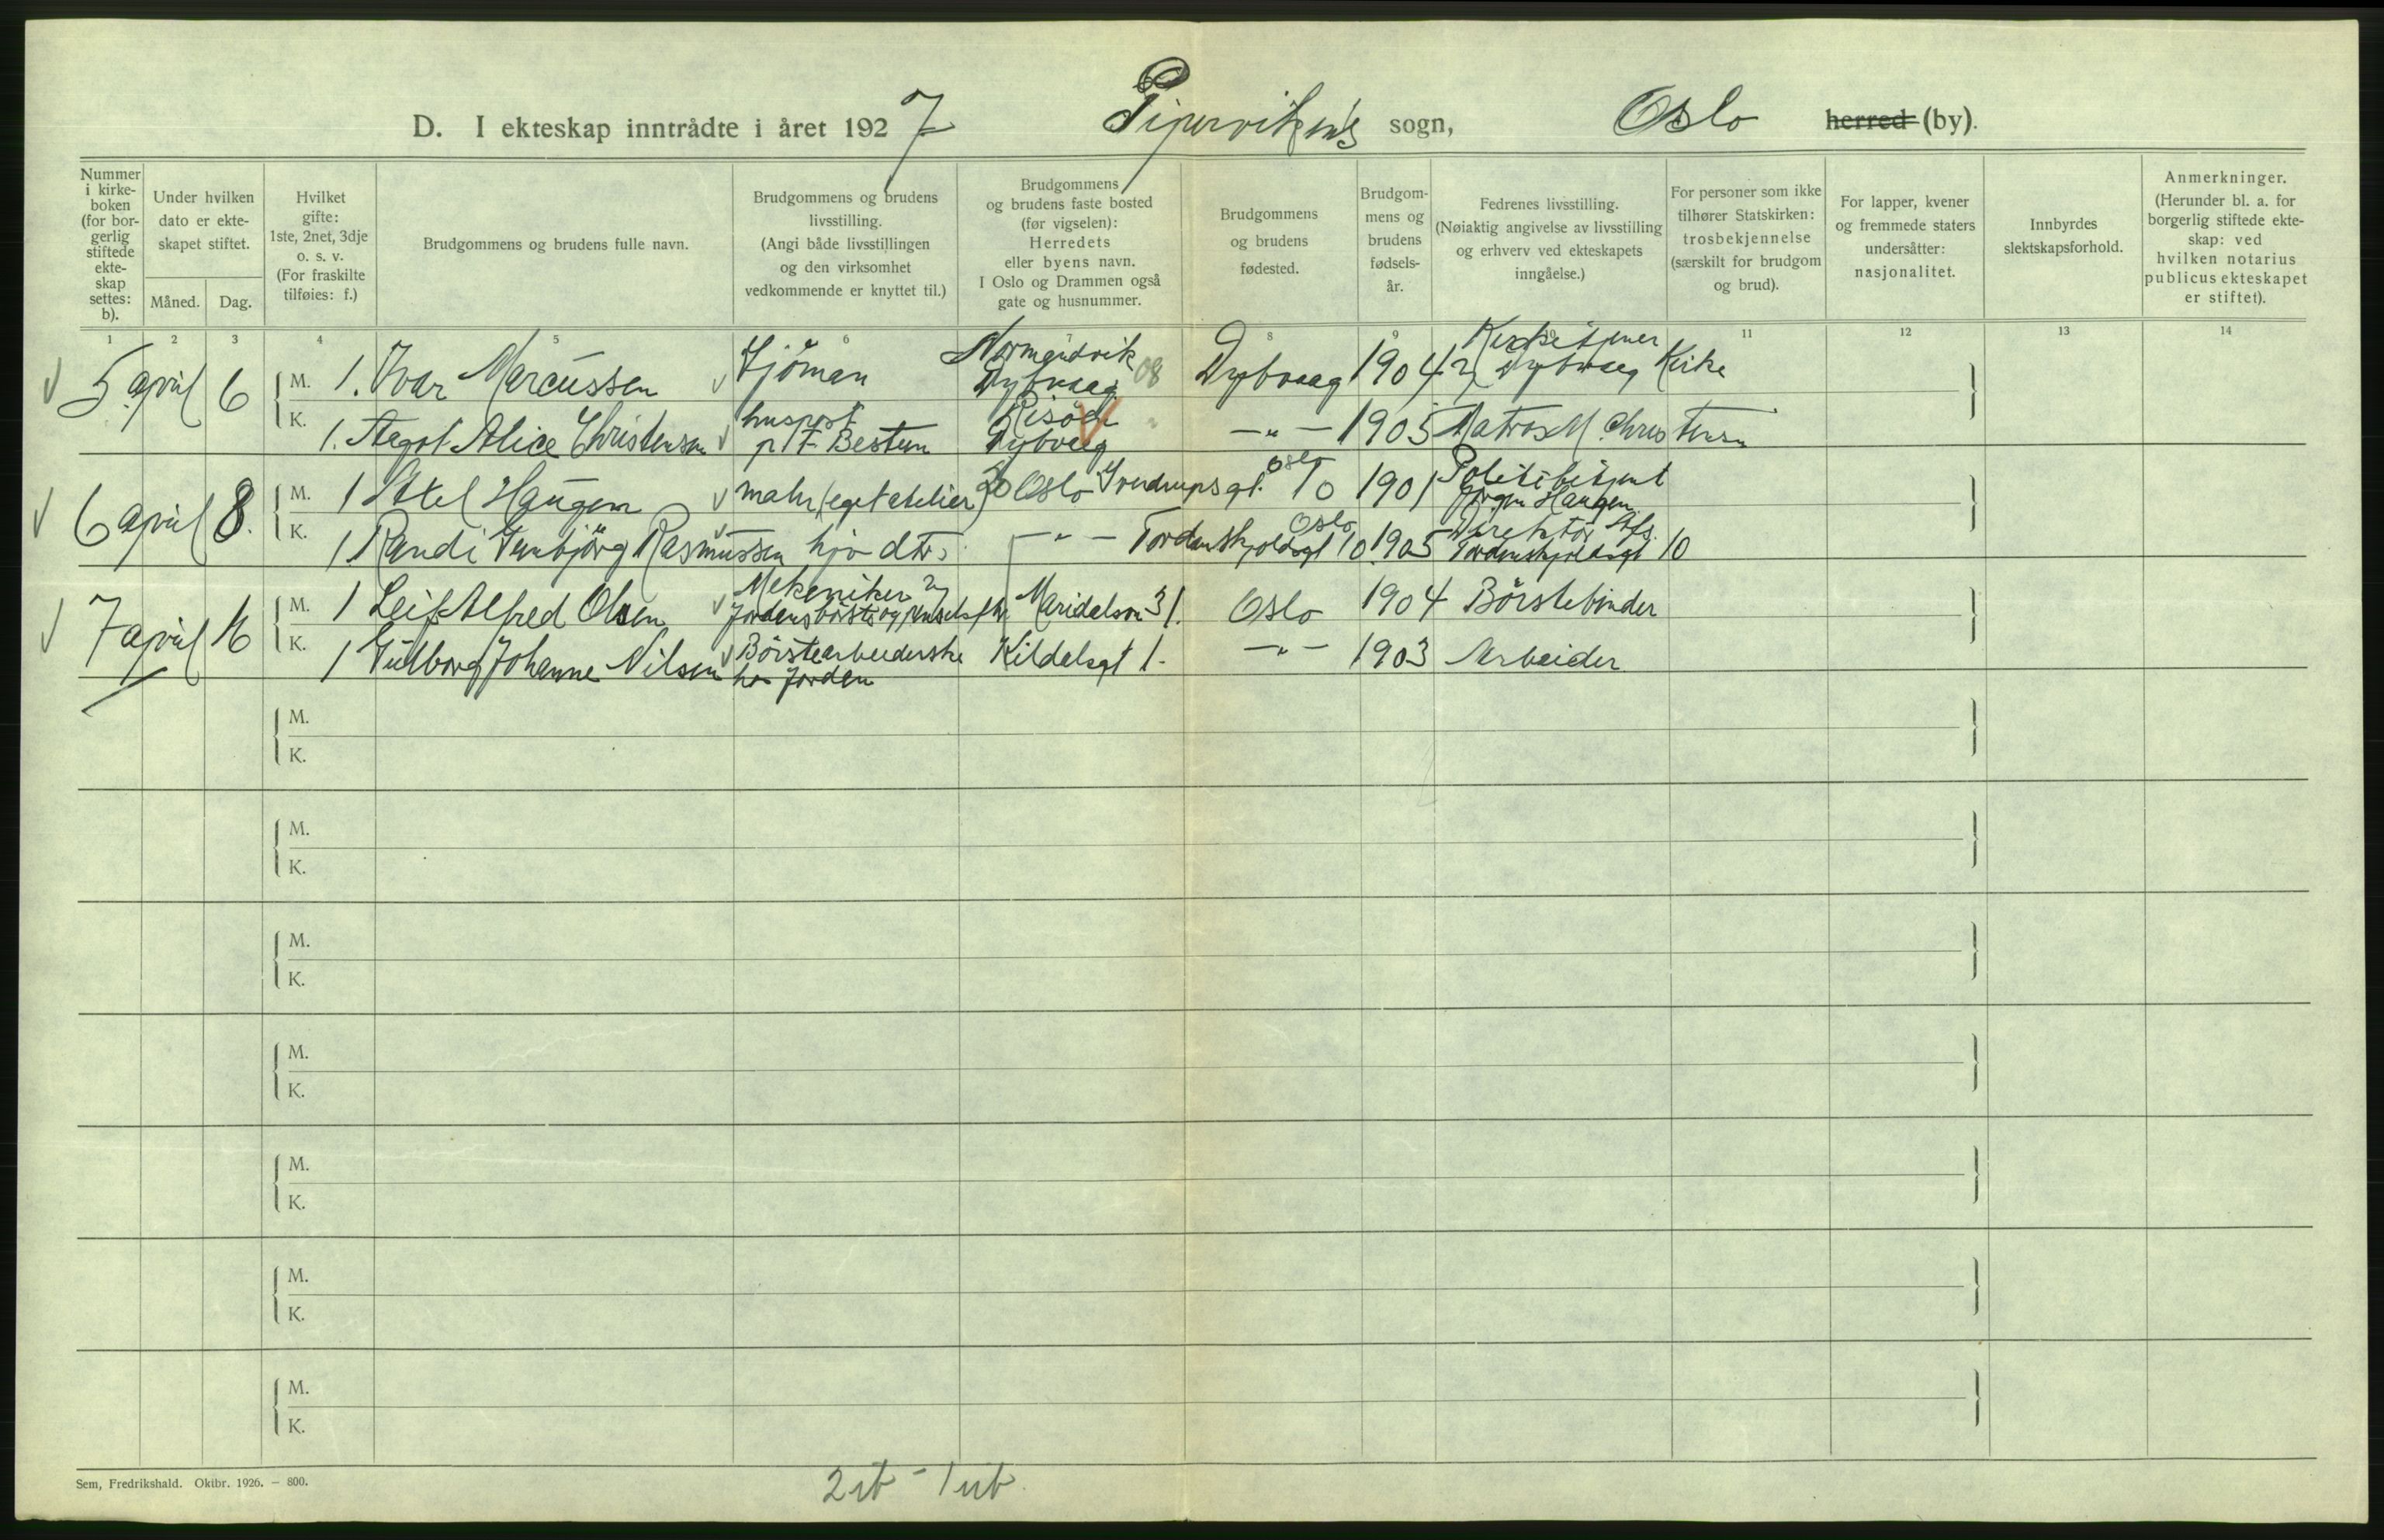 D. I ekteskap inntrådte i året 1927 Pipervikens sogn, Oslo herred (by).
Nummer i kirkeboken (for borgerlig stiftede ekteskap settes: b).
Under hvilken dato er ekteskapet stiftet.
Måned. Dag.
Hvilket gifte: 1ste, 2net, 3dje o. s. v. (For fraskilte tilføies: f.)
Brudgommens og brudens fulle navn.
Brudgommens og brudens livsstilling. (Angi både livsstillingen og den virksomhet vedkommende er knyttet til.)
Brudgommens og brudens faste bosted (før vigselen): Herredets eller byens navn. I Oslo og Drammen også gate og husnummer.
Brudgommens og brudens fødested.
Brudgommens og brudens fødselsår.
Fedrenes livsstilling. (Nøiaktig angivelse av livsstilling og erhverv ved ekteskapets inngåelse.)
For personer som ikke tilhører Statskirken: trosbekjennelse (særskilt for brudgom og brud).
For lapper, kvener og fremmede staters undersåtter: nasjonalitet.
Innbyrdes slektskapsforhold.
Anmerkninger. (Herunder bl. a. for borgerlig stiftede ekteskap: ved hvilken notarius publicus ekteskapet er stiftet).
1 2 3 4 5 6 7 8 9 10 11 12 13 14
5 april 6 M. 1. Ivar Marcussen Sjöman Normandvik Dybvaag 08 Dybvaag 1904 Kirketjener v Dybvaag Kirke
K. 1. Alice Christensen huspost p t Bestum Risöen Dybvaag —"— 1905 Matros M. Christensen
6 april 8. M. 1 Axel Haugen maler (eget atelier) Oslo Oslo 1901 Politibetjent Jørgen Haugen
K. 1 Randi Rasmussen hjv dtr. —"— Tordenskjoldsgt 10 Oslo 1905 Direktör Tordenskjoldsgt 10
7 april 16 M. 1 Leif Alfred Olsen Mekaniker v Jordens börste og Maridalsvn 31. Oslo 1904 Börstebinder
K. 1 Gudborg Johanne Nilsen Börstearbeiderske hos Jorden Kildalsgt 1. —"— 1903 Arbeider
M.
K.
M.
K.
M.
K.
M.
K.
M.
K.
M.
K.
M.
K.
Sem, Fredrikshald. Oktbr. 1926. — 800.
2 ib - 1 ub.